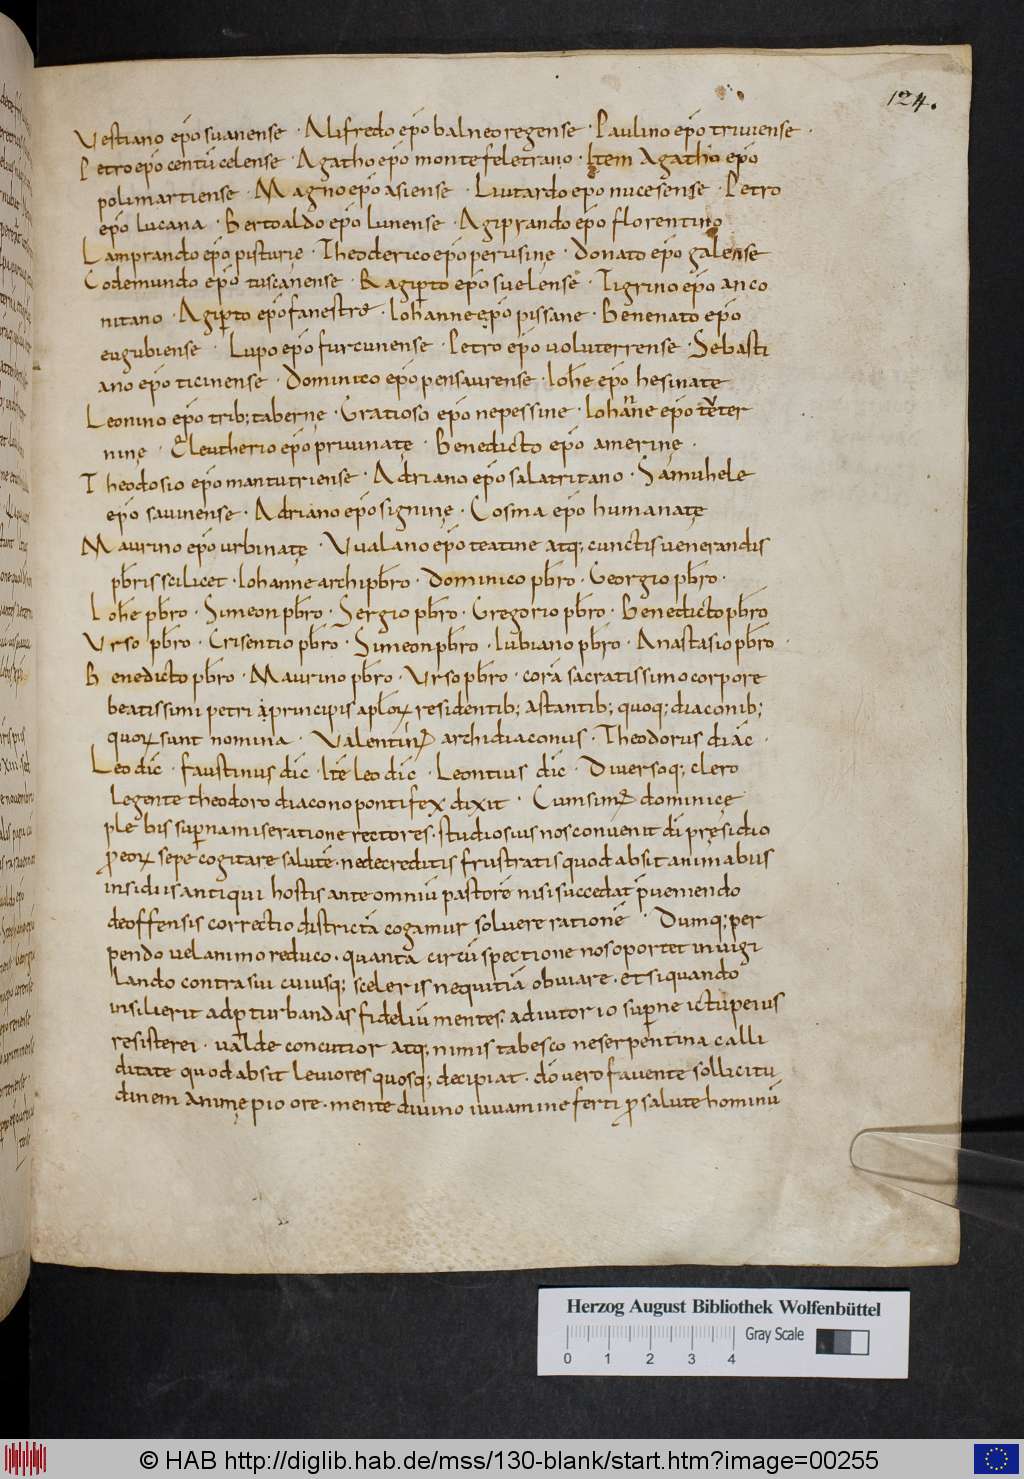 124.
Vestiano ep̄o suanense · Alifredo ep̄o balneoregense · Paulino ep̄o triuiense ·
Petro ep̄o centū celense · Agatho ep̄o montefeletrano · Item Agatho ep̄o
polimartiense · Magno ep̄o asiense · Liutardo ep̄o nucesense · Petro
ep̄o lucana · Bertoaldo ep̄o lunense · Agiprando ep̄o florentino
Lamprando ep̄o pisturie · Theoderico ep̄o perusinę · Donato ep̄o galense
Codemundo ep̄o tuscanense · Ragip̲to ep̄o suelense · Tigrino ep̄o anco
nitano · Agip̲to ep̄o fanestre · Iohanne ep̄o pissane · Benenato ep̄o
eugubiense · Lupo ep̄o furcunense · Petro ep̄o uoluterrense · Sebasti
ano ep̄o ticinense · Dominico ep̄o pensaurense · Ioh̄e ep̄o hesinatę
Leonino ep̄o trib; tabernę · Gratioso ep̄o nepessine · Iohanne ep̄o
ninę · Eleutherio ep̄o priuinatę · Benedicto ep̄o amerinę ·
Theodosio ep̄o mantutriense · Adriano ep̄o salatritano · Samuhele
ep̄o sauinense · Adriano ep̄o signinę · Cosma ep̄o humanatę
Maurino ep̄o urbinatę · Vualano ep̄o teatine atq; cunctis uenerandis
pb̄ris scilicet · Iohanne archipb̄ro · Dominico pb̄ro · Georgio pb̄ro ·
Ioh̄e pb̄ro · Simeon pb̄ro · Sergio pb̄ro · Gregorio pb̄ro · Benedicto pb̄ro
Vrso pb̄ro · Crisentio pb̄ro · Simeon pb̄ro · Iubiano pb̄ro · Anastasio pb̄ro ·
Benedicto pb̄ro · Maurino pb̄ro · Vrso pb̄ro · corā sacratissimo corpore
beatissimi petri principis apl̄oꝝ residentib; astantib; quoq; diaconib;
quoꝝ sunt nomina · Valentinꝰ archidiaconus · Theodorus diāc ·
Leo dīc · faustinus dīc · Itē leo dīc · Leontius dīc · Diuersoq; clero
Legente theodoro diacono pontifex dixit · Cum simꝰ dominicę
plebis sup̲na miseratione rectores · studiosius nos conuenit di presidio
ꝓ eoꝝ sepe cogitare salutē · ne decreditis frustratis quod absit animabus
insidiis antiqui hostis ante omniū pastorē nisi succedat p̄ueniendo
de offensis correctio districtā cogamur soluere rationē · Dumq; per
pendo uel animo reduco · quanta circū spectione nos oportet inuigi
lando contra sui cuiusq; sceleris nequitiā obuiare · et si quando
insilierit ad p̲turbandas fideliū mentes · adiutorio sup̲ne ictu peius
resisterei · ualde concutior atq; nimis tabesco ne serpentina calli
ditate quod absit leuiores quosq; decipiat · dō uero fauente sollicitu
dinem animę pio ore · mente diuino iuuamine ferti ꝓ salute hominū
Herzog August Bibliothek Wolfenbüttel
Gray Scale
0 1 2 3 4
© HAB http://diglib.hab.de/mss/130-blank/start.htm?image=00255